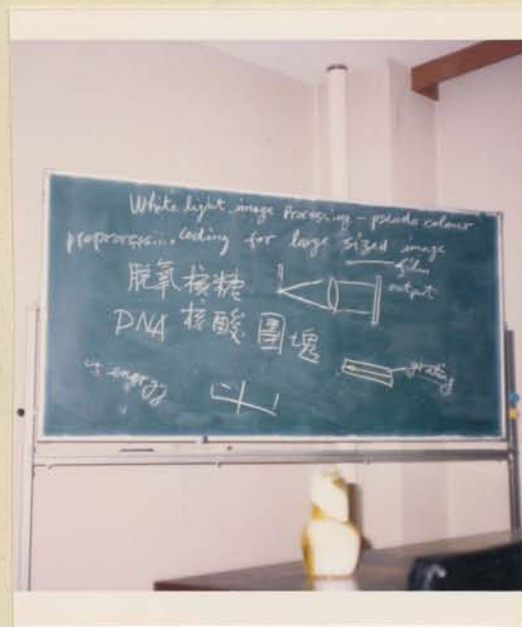 White light image Processing - pseudo colour
preprocess... coding for large sized image
film
脱氧核糖
output
DNA 核酸 團塊
grating
energy